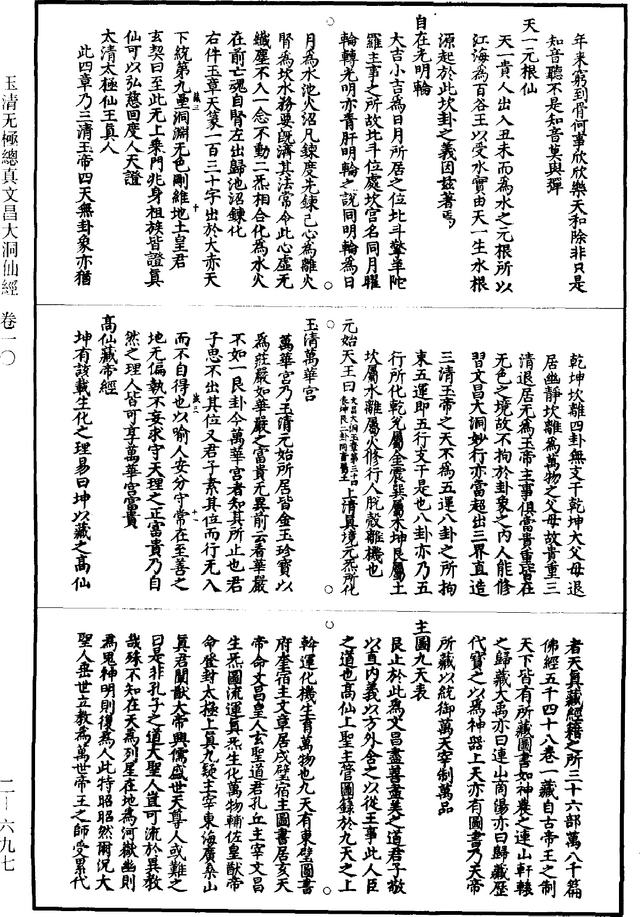 年来窮到骨何事欣欣樂天和除非只是
知音聽不是知音莫與彈
天一元根仙
天一貴人出入丑未而爲水之元根所以
江海爲百谷王以受水實由天一生水根
源起於此坎卦之義因玆著焉
自在光明輪
大吉小吉爲日月所居之位北斗擎羊陀
羅主事之所故北斗位處坎宮名同月曜
輪轉光明亦膏肝明輪之說同明輪爲日
月爲水池火沼凡鍊度先鍊己心爲離火
腎爲坎水務要既濟其法常令此心虛无
纖塵不入一念不動二炁相合化爲水火
在前亡魂自腎左出歸池沼鍊化
右件玉章天篆一百三十字出於大亦天
下統第九壘洞淵无色剛維地土皇君
玄契曰至此无上乘門兆身祖族皆證真
仙可以弘慈回度人天證
太清太極仙王真人
此四章乃三清玉帝四天無卦象亦猶
乾坤坎離四卦無支干乾坤大父母退
居幽靜坎離爲萬物之父母故貴重三
清退居无爲玉帝主事俱富貴重皆在
无色之境故不拘於卦象之內人能修
習文昌大洞妙行亦當超出三界直造
三清玉帝之天不爲五運八卦之所拘
束五運即五行支干是也八卦亦乃五
行所化乾兌屬金震巽屬木坤艮屬土
坎屬水離屬火修行人脫殼離機也
元始天王曰上清真境元炁所化
玉清萬華宮
萬華宮乃玉清元始所居皆金玉珍寶以
爲莊嚴如華嚴之富貴无異前云看華嚴
不如一艮卦今萬華宮者知其所止也君
子思不出其位又君子素其位而行无入
而不自得也以喻人安分守常在至善之
地无偏執不妄求守天理之正富貴乃自
然之理人皆可享萬華宮富貴
高仙藏帝經
坤有該載生化之理易曰坤以藏之高仙
者天真藏經籍之所三十六部萬八千篇
佛經五千四十八卷一藏自古帝王之制
天下皆有所藏圖書如神農之連山軒轅
之歸藏大禹亦曰連山商湯亦曰歸藏歷
代寶之以爲神器上天亦有圖書乃天帝
所藏以統御萬天宰制萬品
主圖九天表
艮止於此爲文昌盡善盡美之道君子敬
以直內義以方外含之以從王事此人臣
之道也高仙上聖主管圖籙於九天之上
斡運化機生育萬物也九天有東壁圖書
府奎宿主文章居戌壁宿主圖書居亥天
帝命文昌皇人玄聖道君孔丘主宰文昌
生炁圖流運真炁生化萬物輔佐皇猷帝
命登封太極上真九疑主宰東海廣桑山
真君闡猷大帝興儒盛世天尊人或難之
曰是非孔子之道大聖人豈可流於異教
哉殊不知在天爲列星在地爲河嶽幽則
爲鬼神明則復爲人此特昭昭然爾況大
聖人垂世立教爲萬世帝王之師受累代
玉清无極總真文昌大洞仙經 卷一〇
二—六九七